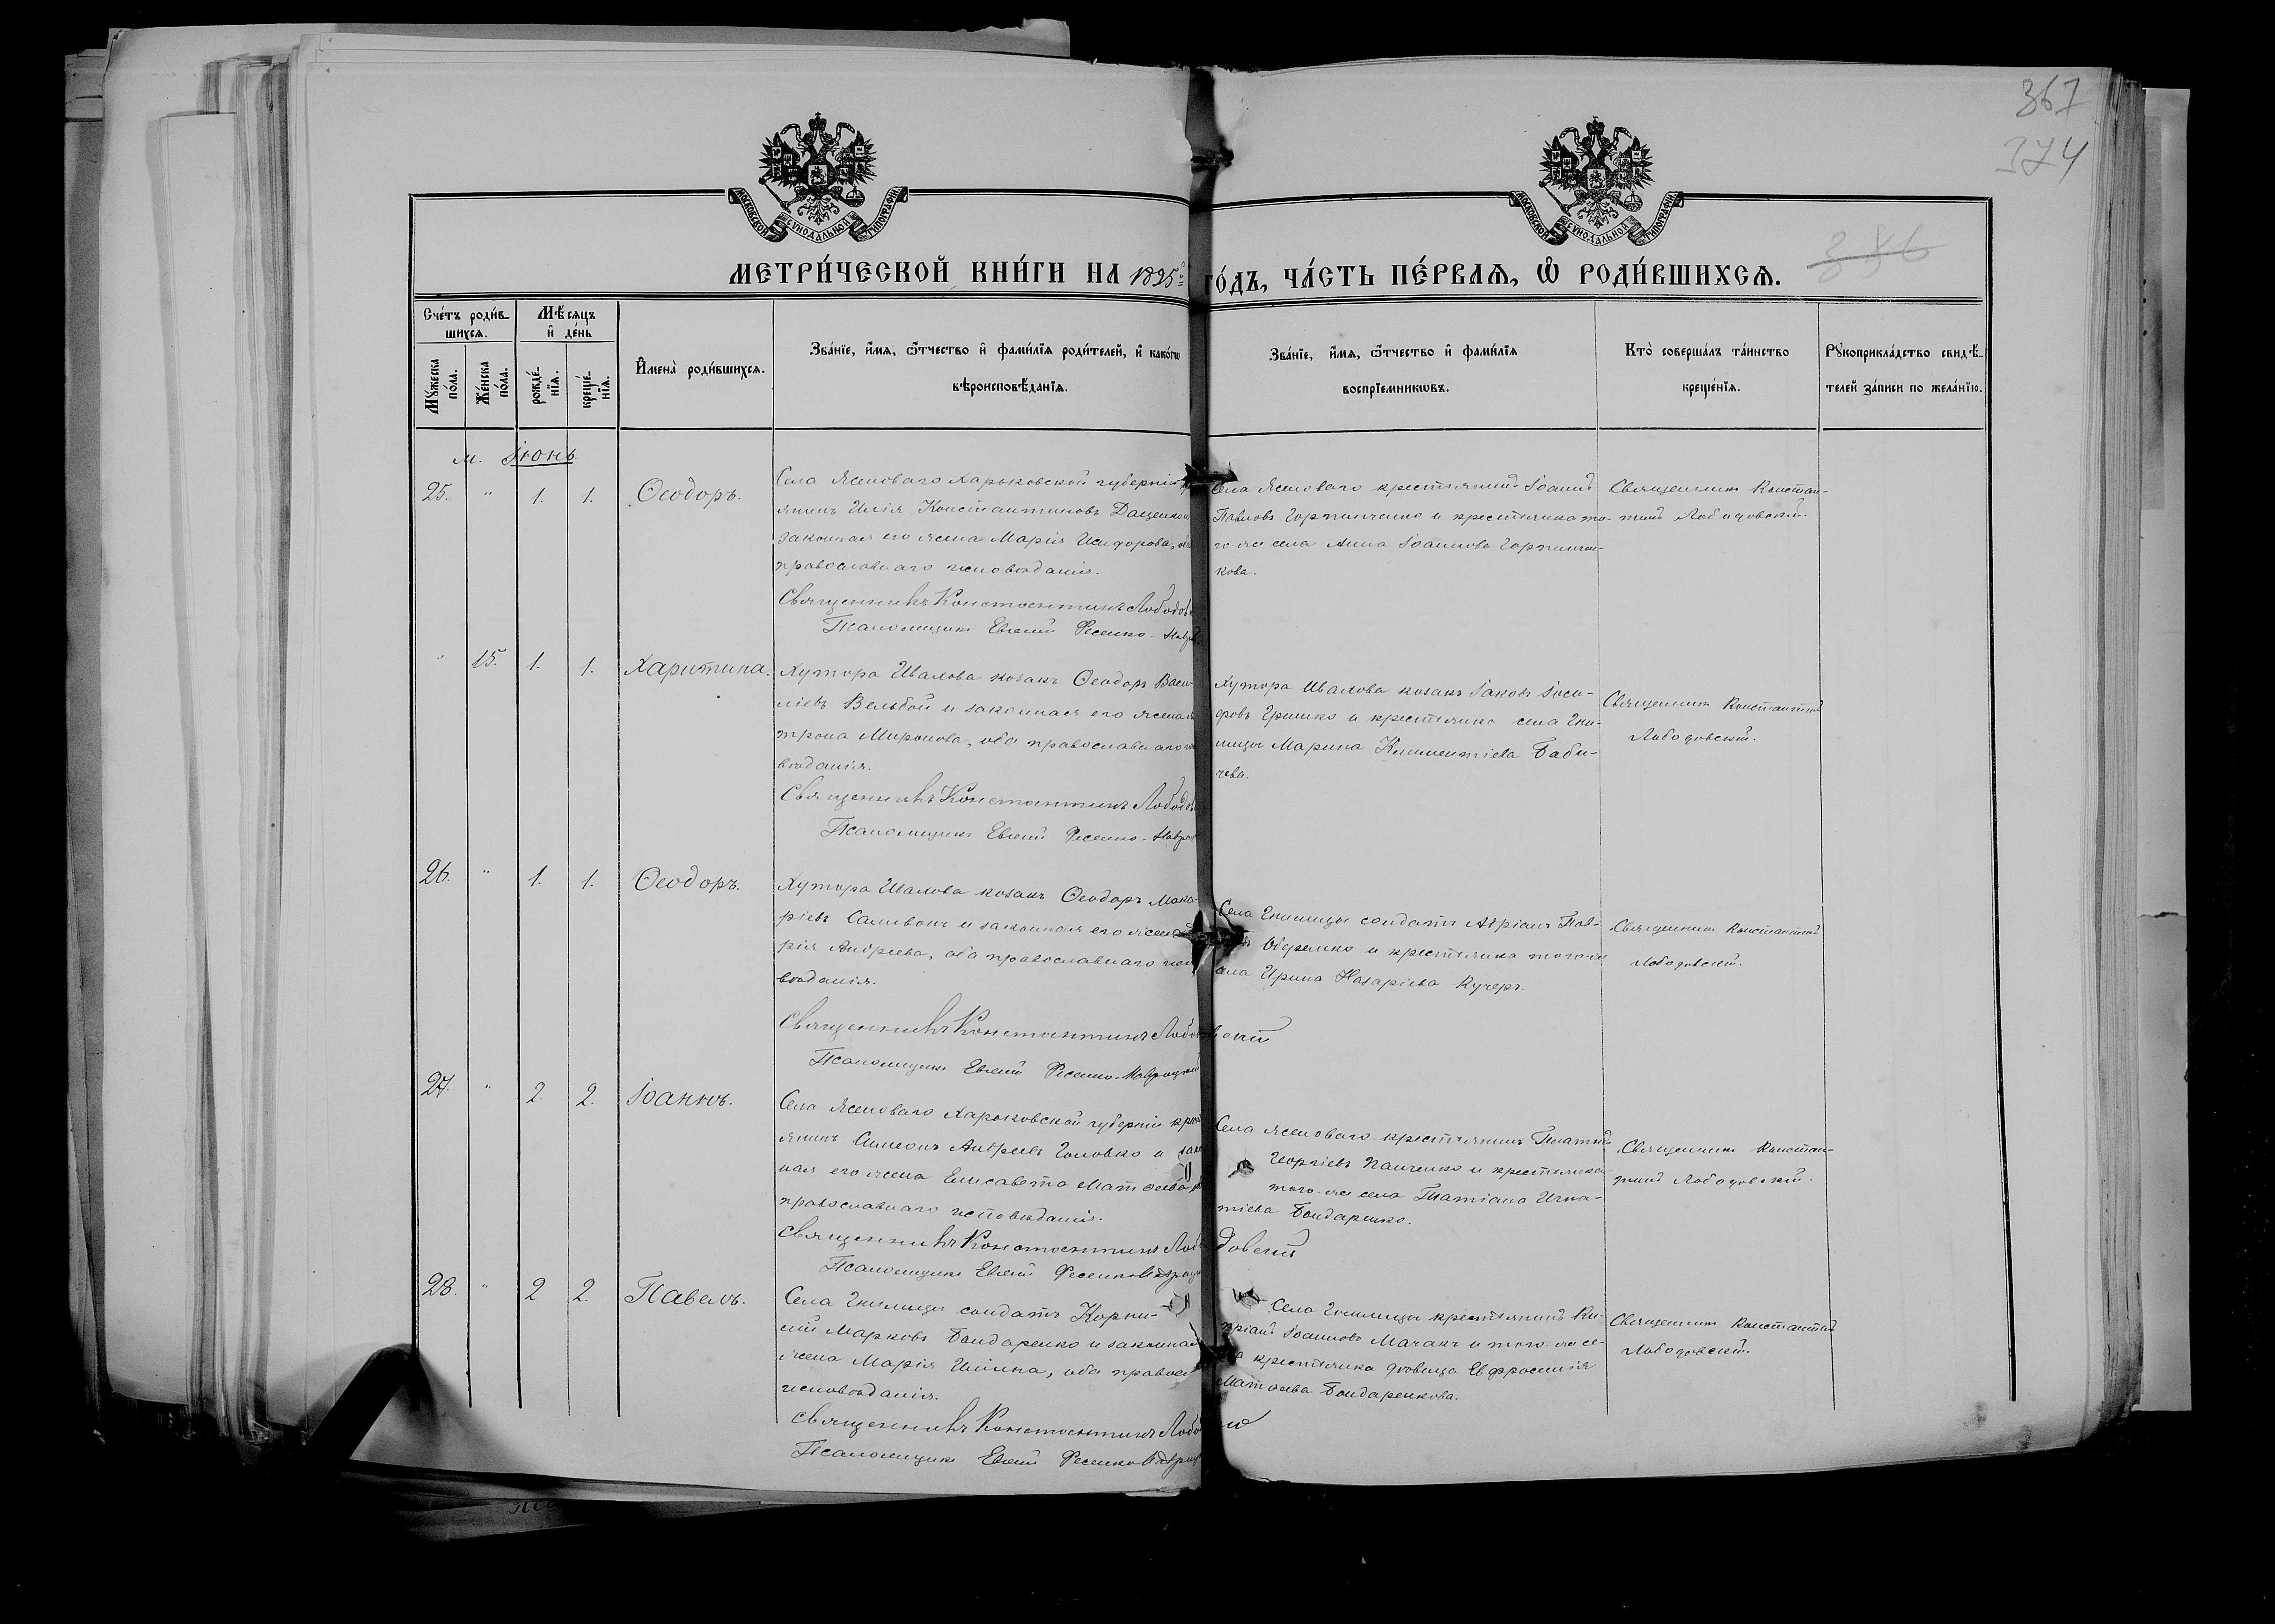 367
374
386
МОСКОВСКОЙ СУНОДАЛЬНОЙ ТИПОГРАФІИ
МОСКОВСКОЙ СУНОДАЛЬНОЙ ТИПОГРАФІИ
МЕТРИ́ЧЕСКОЙ КНИ́ГИ НА 1895 ГО́ДЪ, ЧА́СТЬ ПЕ́РВАѦ, Ѡ҆ РОДИ́ВШИХСѦ.
Сче́тъ роди́в-
шихсѧ.
Мѣ́сѧцъ
и҆ де́нь
Мꙋ́жеска
по́ла.
Же́нска
по́ла.
рожде́-
нїѧ.
креще́-
нїѧ.
И҆мена̀ роди́вшихсѧ.
Зва́нїе, и҆́мѧ, ѻ҆́тчество и҆ фами́лїѧ роди́телей, и҆ како́гѡ
вѣроисповѣ́данїѧ.
Зва́нїе, и҆́мѧ, ѻ҆́тчество и҆ фами́лїѧ
воспрїе́мникѡвъ.
Кто̀ соверша́лъ та́инство
креще́нїѧ.
Рꙋкоприкла́дство свидѣ́-
телей за́писи по жела́нїю.
м. Іюнь
25. " 1. 1. Ѳеодоръ.
Села Ясеноваго Харьковской губерніи
янинъ Илія Константиновъ Даценко
законная его жена Марія Исидорова,
православнаго исповѣданія.
Священникъ Константинъ Лободов
Псаломщикъ Евгеній Фесенко-
Села Ясеноваго крестьянинъ Іоаннъ
Павловъ Горпинченко и крестьянка то-
го-же села Анна Іоаннова Горпинчен-
кова.
Священникъ Констан-
тинъ Лободовскій.
" 15. 1. 1. Харитина.
Хутора Ивалова козакъ Ѳеодоръ Васи-
ліевъ Вельбой и законная его жена
трона Миронова, оба православнаго
вѣданія.
Священникъ Константинъ Лободов
Псаломщикъ Евгеній Фесенко-
Хутора Ивалова козакъ Іаковъ Іоси-
фовъ Гришко и крестьянка села Гни-
лицы Марина Климентіева Баби-
чева.
Священникъ Константинъ
Лободовскій.
26. " 1. 1. Ѳеодоръ.
Хутора Ивалова козакъ Ѳеодоръ Мака-
ріевъ Саливонъ и законная его жена
рія Андреева, оба православнаго испо
вѣданія.
Священникъ Константинъ Лободовскій
Псаломщикъ Евгеній Фесенко-Навроцкій
Села Гнилицы солдатъ Адріанъ Пав-
и крестьянка того-же
села Ирина Назаріева Кучеръ.
Священникъ Константинъ
Лободовскій.
27. " 2. 2. Іоаннъ.
Села Ясеноваго Харьковской губерніи крест
янинъ Симеонъ Андреевъ Головко и зако
ная его жена Елисавета Матѳеева,
православнаго исповѣданія.
Священникъ Константинъ Лободовскій
Псаломщикъ Евгеній Фесенко-
Села Ясеноваго крестьянинъ Платонъ
Георгіевъ Панченко и крестьянка
того-же села Татіана Игна-
тіева Бондаренко.
Священникъ Констан-
тинъ Лободовскій.
28. " 2 2. Павелъ.
Села Гнилицы солдатъ Корни-
лій Марковъ Бондаренко и законная
жена Марія Ильина, оба правосл
исповѣданія.
Священникъ Константинъ Лобо
Псаломщикъ Евгеній Фесенко
Села Гнилицы крестьянинъ Ки-
пріанъ Іоанновъ Мачакъ и того-же се-
ла крестьянка дѣвица Евфросинія
Матѳеева Бондаренкова.
Священникъ Константинъ
Лободовскій.